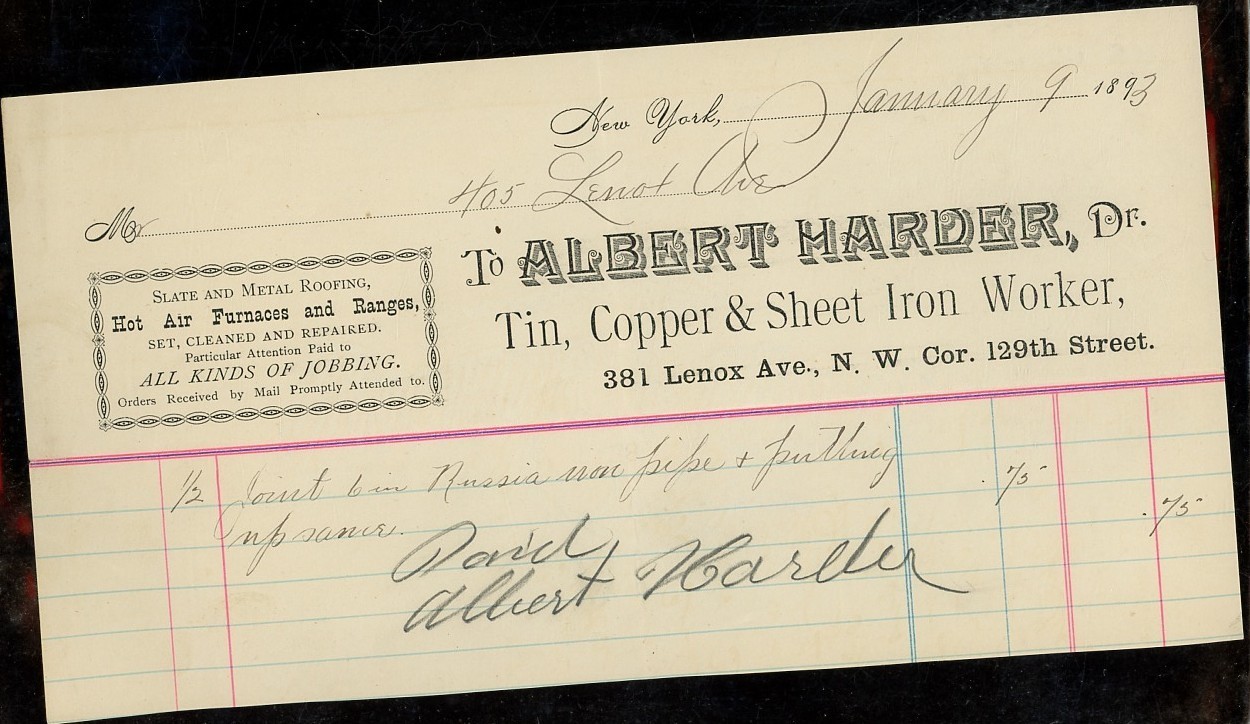 New York, January 9 1893
405 Lenox Ave
Mr
SLATE AND METAL ROOFING,
Hot Air Furnaces and Ranges,
SET, CLEANED AND REPAIRED.
Particular Attention Paid to
ALL KINDS OF JOBBING.
Orders Received by Mail Promptly Attended to.
To ALBERT HARDER, Dr.
Tin, Copper & Sheet Iron Worker,
381 Lenox Ave., N. W. Cor. 129th Street.
1/2 Joint 6 in Russia iron pipe + putting .75
up same. .75
Paid
Albert Harder